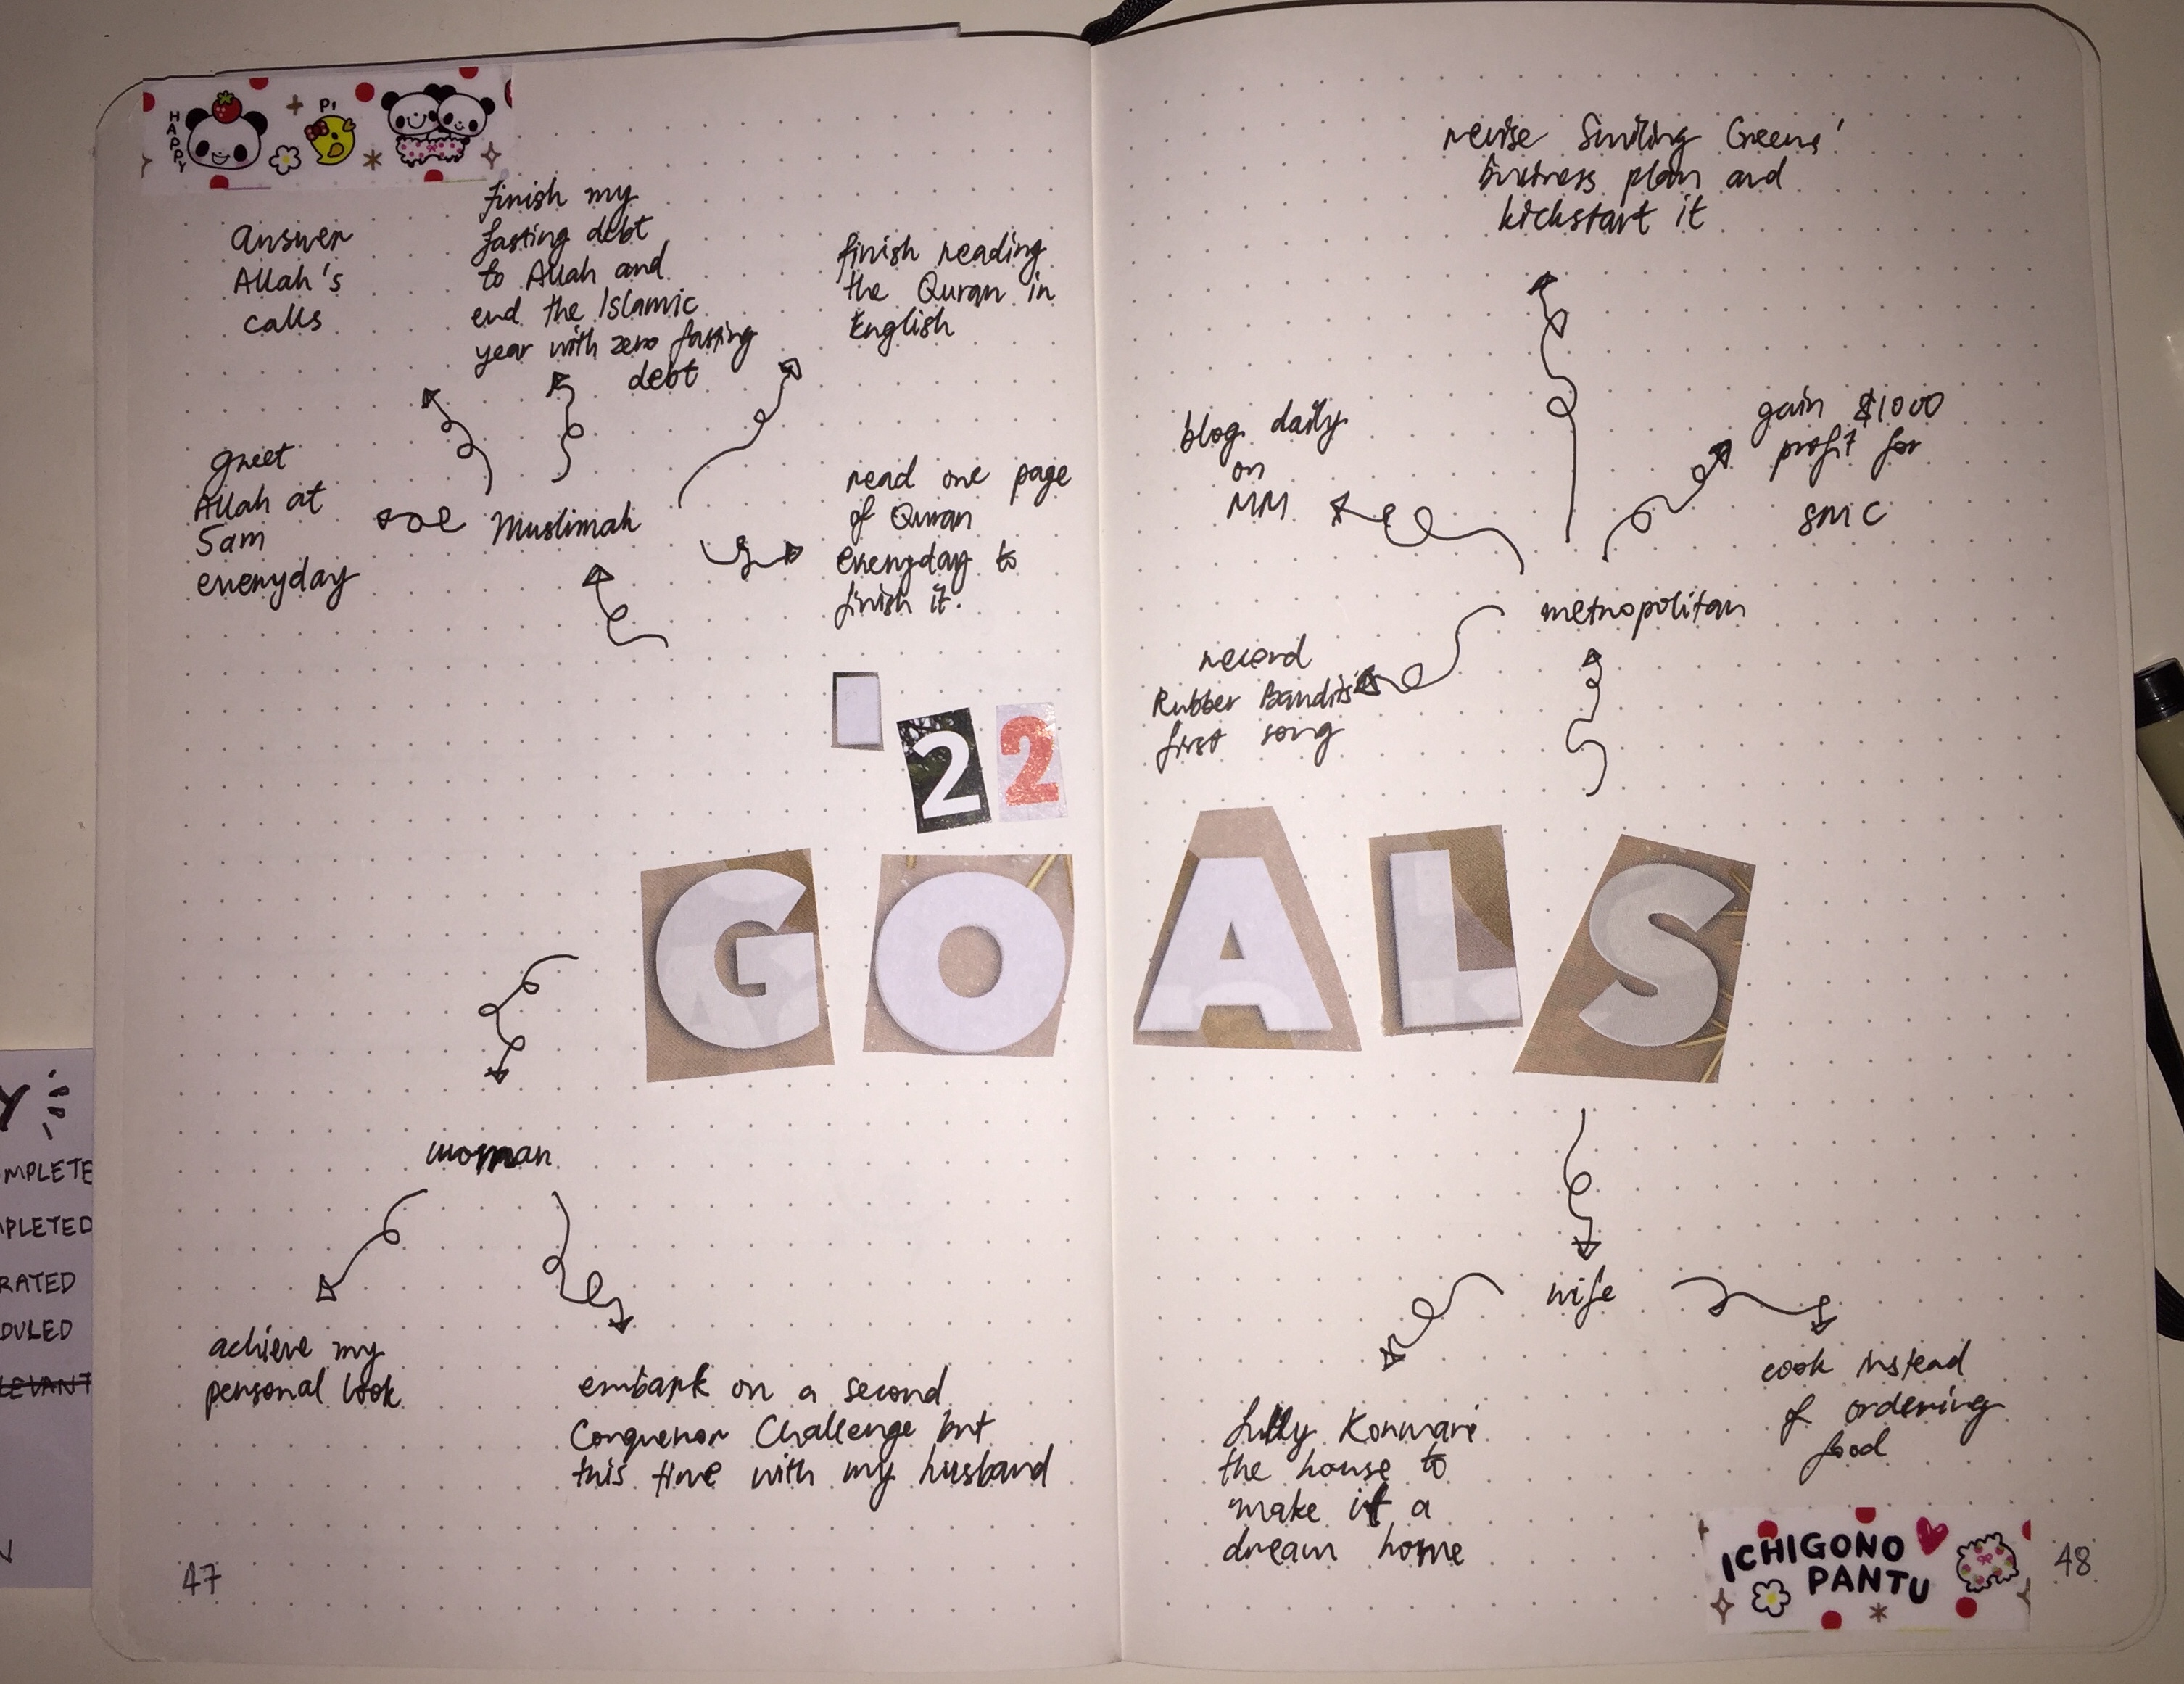 HAPPY
PI
answer
Allah's
calls
finish my
fasting debt
to Allah and
end the Islamic
year with zero fasting
debt
finish reading
the Quran in
English
greet
Allah at
5am
everyday
Muslimah
read one page
of Quran
everyday to
finish it.
'22
GOALS
woman
achieve my
personal look
embark on a second
Conqueror Challenge but
this time with my husband
47
revise Smiling Greens'
business plan and
kickstart it
blog daily
on
MM
gain $1000
profit for
SMC
metropolitan
record
Rubber Bandits'
first song
wife
fully Konmari
the house to
make it a
dream home
cook instead
of ordering
food
ICHIGONO
PANTU
48
Y
MPLETE
MPLETED
RATED
DULED
LEVANT